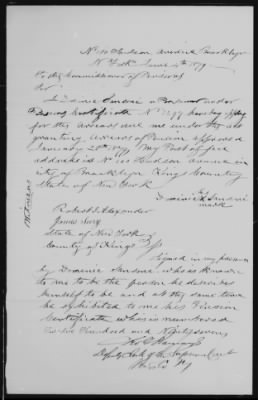 No 10 Hudson Avenue Brooklyn
N.Y. June 4th 1879
To the Commissioner of Pensions
Sir
I Dominic a Pensioner under
Pension Certificate No hereby apply
for the arrears due me under the act
granting arrears of Pension approved
January 25th 1879 My Post office
address is No 10 Hudson Avenue in
City of Brooklyn Kings County
State of New York
his
Dominic X
mark
Witness
Robert S. Alexander
James
State of New York
County of Kings } ss
Signed in my presence
by Dominic who is known
to me to be the person he describes
himself to be and at the same time
he exhibited to me his Pension
Certificate which is numbered
Twelve Hundred and
Deputy Clerk of the Supreme Court
Kings Co N.Y.